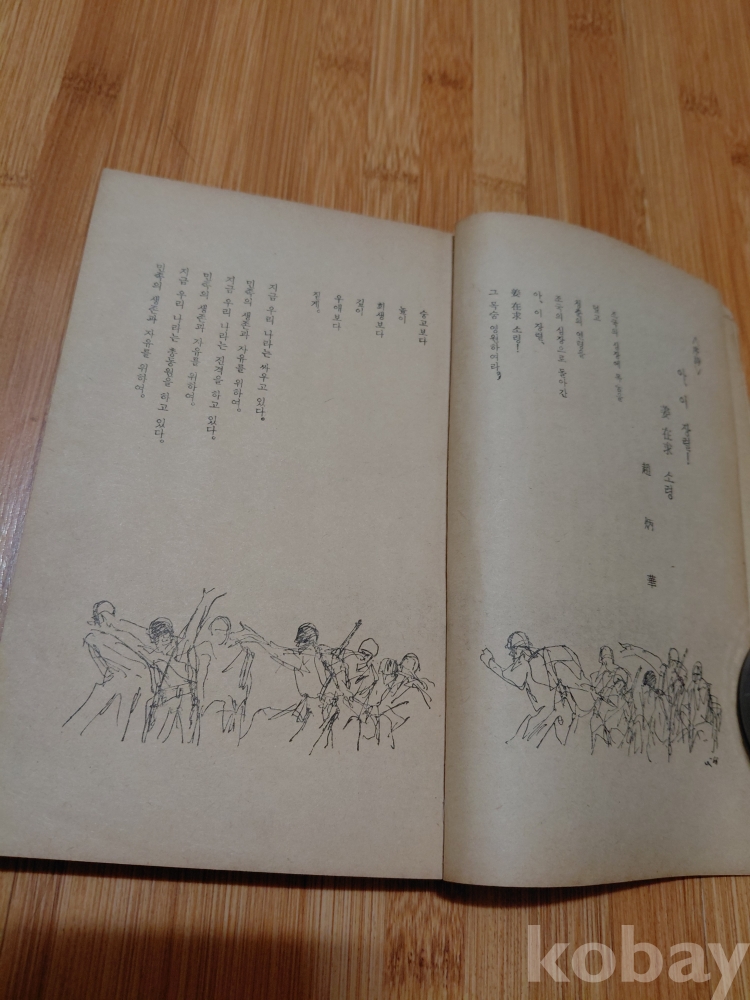 아, 이 장렬!
姜在求 소령
趙炳華
조국의 심장에
조국의 심장으로 돌아간
아, 이 장렬,
姜在求 소령!
그 목숨 영원하여라,
숭고보다
높이
희생보다
깊이
우애보다
짙게.
지금 우리 나라는 싸우고 있다.
민족의 생존과 자유를 위하여.
지금 우리 나라는 진격을 하고 있다.
민족의 생존과 자유를 위하여.
지금 우리 나라는 총동원을 하고 있다.
민족의 생존과 자유를 위하여.
kobay